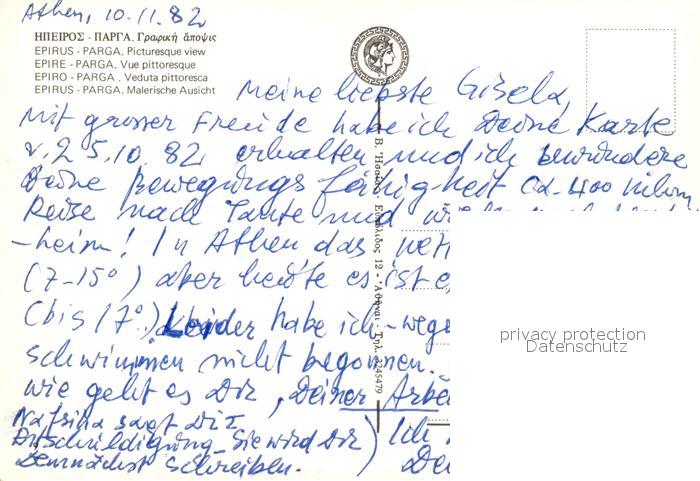 Athen, 10.11.82
ΗΠΕΙΡΟΣ - ΠΑΡΓΑ. Γραφική ἄποψις
EPIRUS - PARGA. Picturesque view
EPIRE - PARGA. Vue pittoresque
EPIRO - PARGA. Veduta pittoresca
EPIRUS - PARGA. Malerische Ausicht
Meine liebste Gisela,
Mit grosser Freude habe ich Deine Karte
v. 25.10.82 erhalten und ich bewundere
Deine Bewegungsfähigkeit ca. 400
Reise nach Tante und
-heim! In Athen das
(7-15°) aber heute es ist
(bis 17°) Leider habe ich - wege
schwimmen nicht begonnen.
Wie geht es Dir, Deiner Arbe
sagt Dir
Entschuldigung - Sie wird Dir
demnächst schreiben.
Ich
De
Β. Ἡσυχος Εὐπόλιδος 12 - Ἀθῆναι. Τηλ. 3245479
privacy protection
Datenschutz